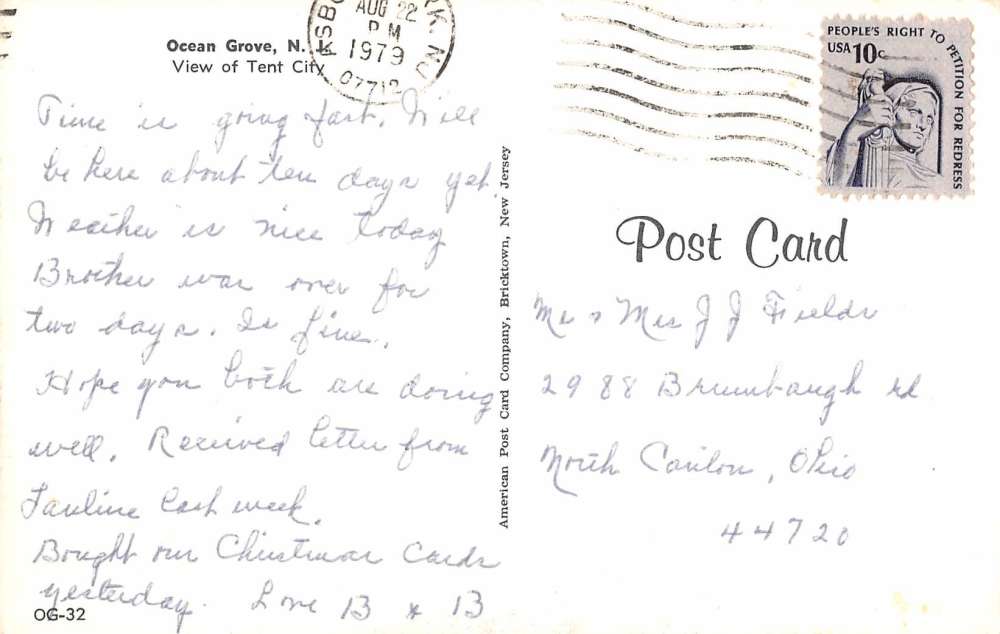 Ocean Grove, N. J.
View of Tent City
AUG 22
PM
1979
07712
PEOPLE'S RIGHT TO PETITION FOR REDRESS
USA 10c
Time is going fast. Will
be here about ten days yet.
Weather is nice today
Brother was over for
two days. Is fine.
Hope you both are doing
well. Received letter from
Pauline last week.
Bought our Christmas Cards
yesterday. Love B & B
OG-32
American Post Card Company, Bricktown, New Jersey
Post Card
Mr & Mrs J J Fields
2988 Brumbaugh rd
North Canton, Ohio
44720